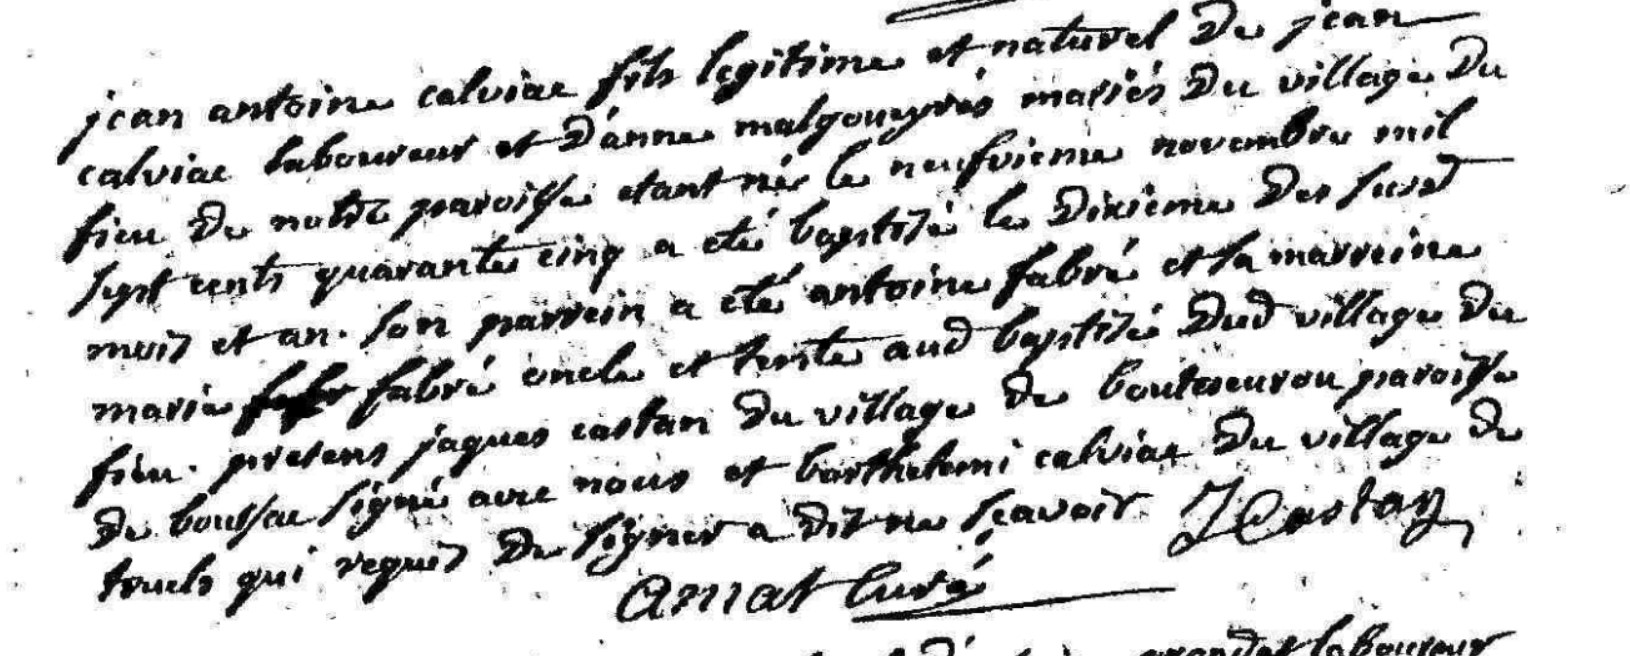 jean antoine calviac fils legitime et naturel de jean
calviac laboureur et d'anne malgouyrés mariés du village du
fieu de notre paroisse etant nés le neufvieme novembre mil
sept cents quarante cinq a eté baptisé le dixieme des susd
mois et an. son parrein a eté antoine fabré et sa marreine
marie fabré oncle et tente aud baptisé dud village du
fieu. presens jaques castan du village de paroisse
de boussac signé avec nous et barthelemi calviac du village de
truels qui requis de signer a dit ne sçavoir JCastan
Amat Curé
laboureur